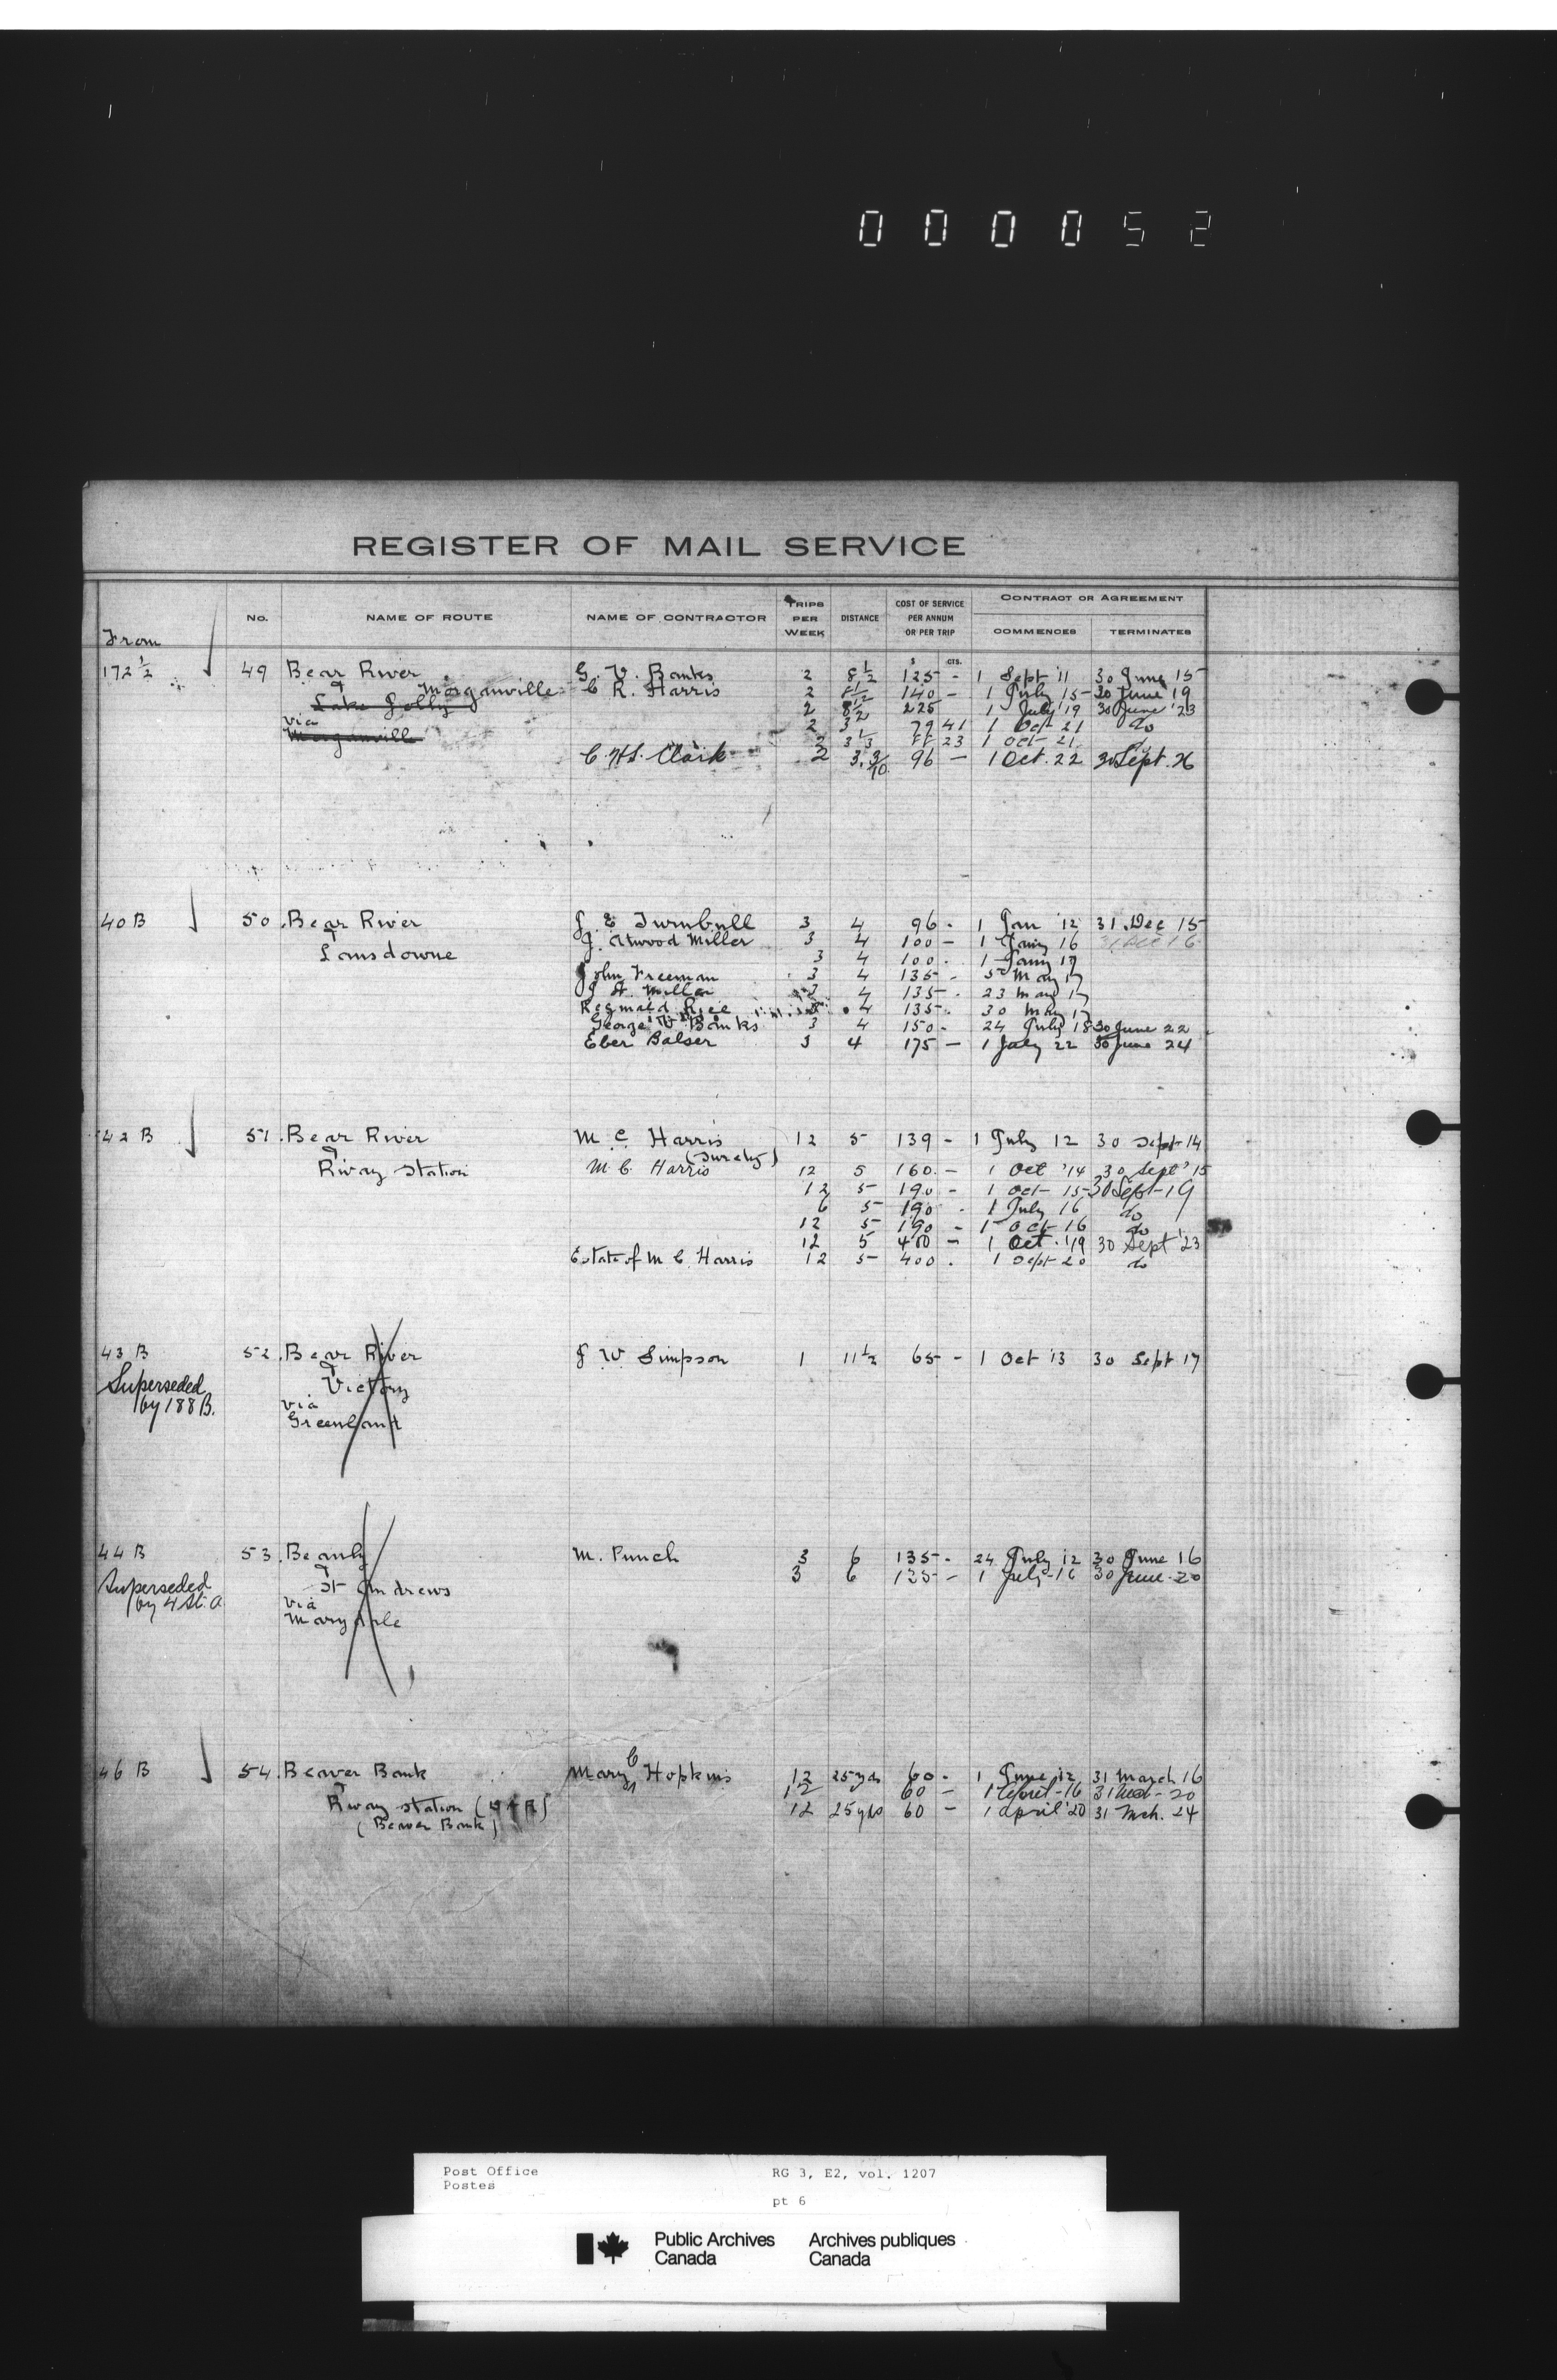 000052
REGISTER OF MAIL SERVICE
From No. NAME OF ROUTE NAME OF CONTRACTOR TRIPS PER WEEK DISTANCE COST OF SERVICE PER ANNUM OR PER TRIP CONTRACT OR AGREEMENT COMMENCES TERMINATES
$ CTS.
172½ 49 Bear River G. V. Banks 2 8½ 125 - 1 Sept '11 30 June 15
& Morganville C R. Harris 2 8½ 140 - 1 July 15 30 June 19
Lake Jolly 2 8½ 225 1 July '19 30 June '23
via 2 3½ 79 41 1 Oct 21 do
Morganville 2 3⅓ 23 1 Oct 21
C. H. Clark 2 3.3/10 96 - 1 Oct. 22 30 Sept. 26
40 B 50. Bear River J. E Turnbull 3 4 96 - 1 Jan '12 31 Dec 15
& J. Atwood Miller 3 4 100 - 1 Jany 16 31 Dec 16
Lansdowne 3 4 100. 1 Jany 17
John Freeman 3 4 135 - 5 May 17
J. H. Miller 3 4 135 - 23 May 17
Reginald Rice 4 135 - 30 May 17
George V Banks 3 4 150 - 24 July 18 30 June 22
Eber Balser 3 4 175 - 1 July 22 30 June 24
42 B 51. Bear River M C Harris 12 5 139 - 1 July 12 30 Sept 14
& (Surety)
Rway Station M. C. Harris 12 5 160 - 1 Oct '14 30 Sept '15
12 5 190 - 1 Oct 15 30 Sept-19
6 5 190 - 1 July 16 do
12 5 190 - 1 Oct 16 do
12 5 400 - 1 Oct. '19 30 Sept '23
Estate of M C. Harris 12 5 400. 1 Sept 20 do
43 B 52. Bear River J W Simpson 1 11½ 65 - 1 Oct '13 30 Sept 17
Superseded & Victory
by 188 B. via
Greenland
44 B 53. Beauly M. Punch 3 6 135 - 24 July 12 30 June 16
& 3 6 135 - 1 July-16 30 June-20
Superseded St Andrews
by 4 St. A via
Marydale
46 B 54. Beaver Bank Mary C Hopkins 12 25 yds 60 - 1 June 12 31 March 16
& 12 60 - 1 April-16 31 Mch-20
Rway Station 12 25 yds 60 - 1 April '20 31 Mch. 24
(Beaver Bank)
Post Office RG 3, E2, vol. 1207
Postes
pt 6
Public Archives Archives publiques
Canada Canada